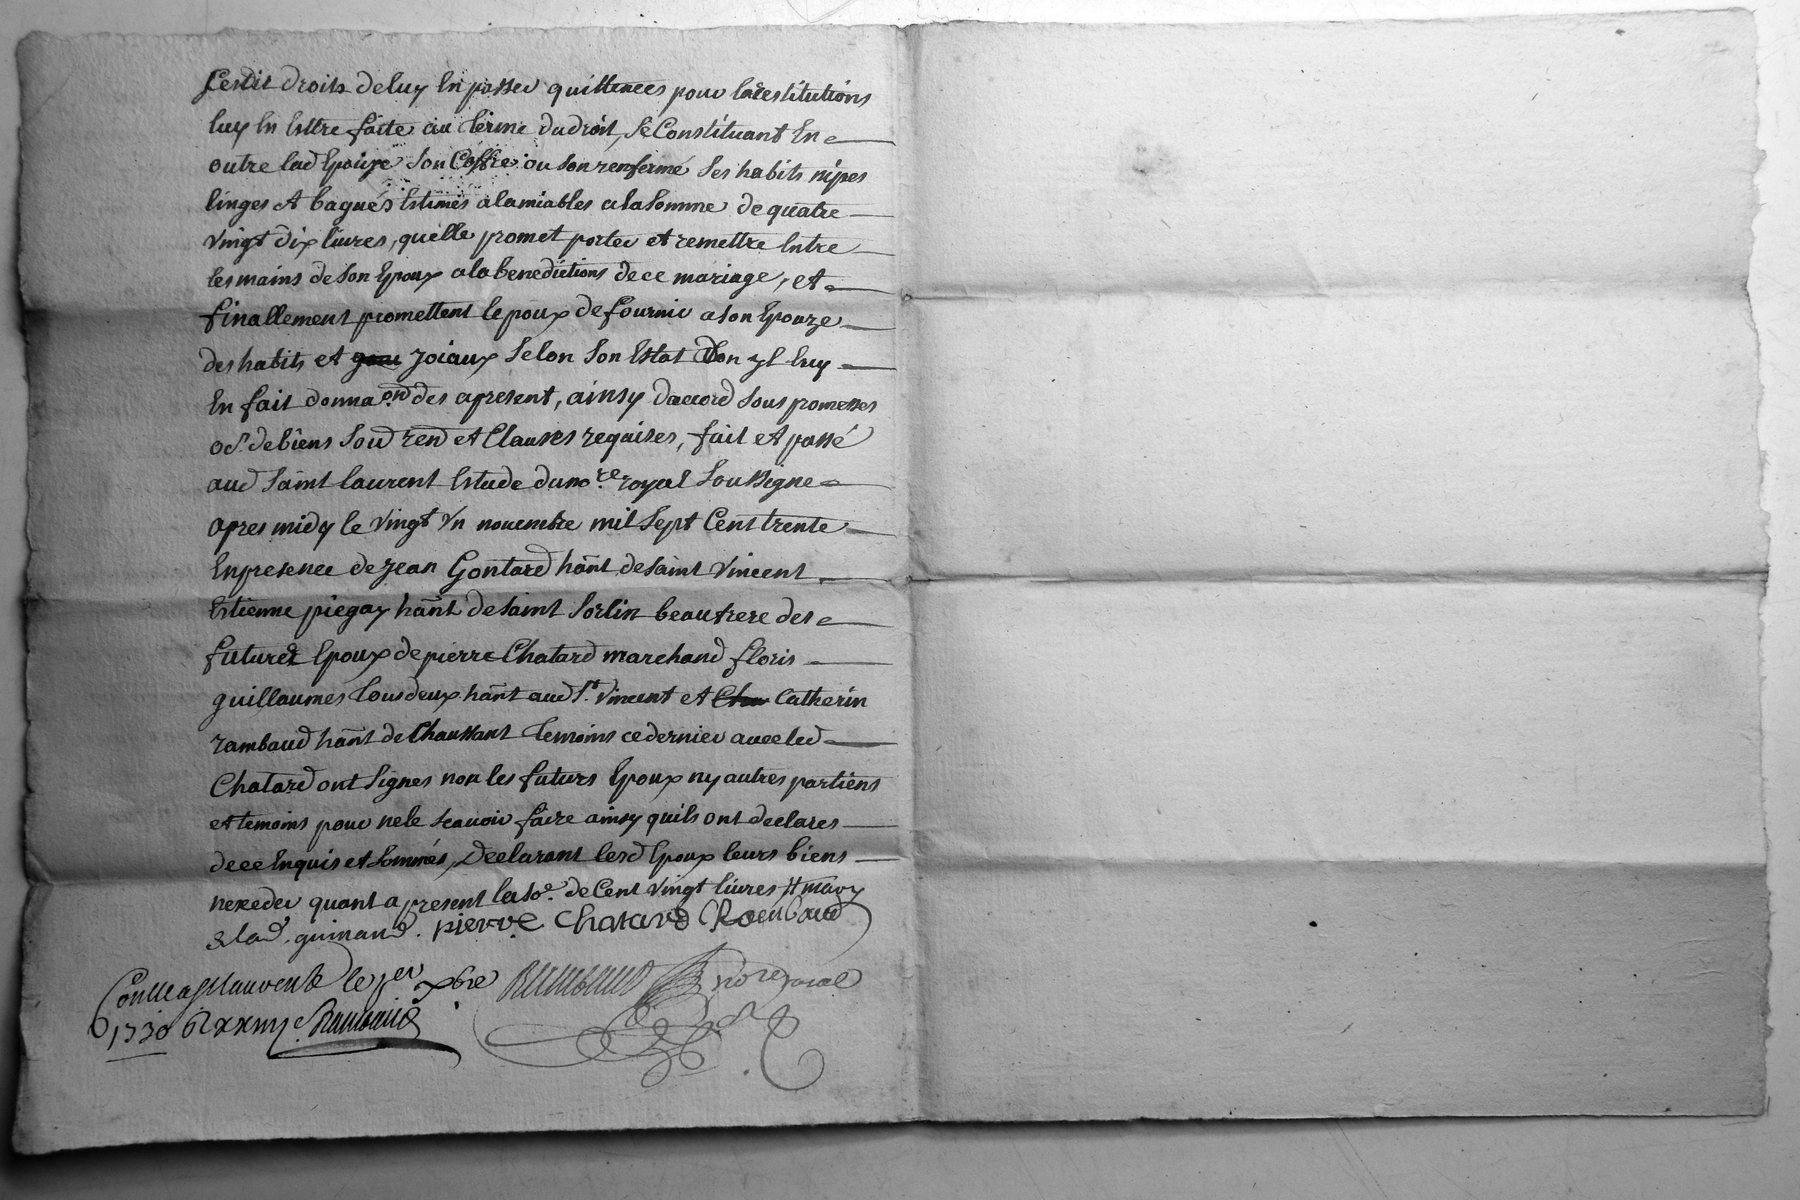 Cesdit droits de luy En passer quittances pour la restitutions
luy En Estre faite au terme du droit, Se Constituant En
outre lad Epouze son Coffre ou son renfermé Ses habits nipes
linges et bagues Estimés a lamiables a la Somme de quatre
vingt dix livres, quelle promet porter et remettre Entre
les mains de son Epoux a la benedictions de ce mariage, et
finallement promettent lepoux de fournir a son Epouze
des habits et joiaux Selon Son Estat Don yl luy
En fait donna.on des apresent, ainsy daccord Sous promesses
ob. de biens Soud rend et Clauses requises, fait et passé
aud Saint laurent Estude du no.re royal Soussigne
apres midy le vingt vn nouembre mil Sept Cens trente
En presence de jean Gontard hant de Saint Vincent
Estienne piegay hant de Saint Sorlin beaufrere des
futures Epoux de pierre Chatard marchand floris
guillaumes tous deux hant aud St. Vincent et Catherin
rambaud hant de Chaussant temoins ce dernier auec led
Chatard ont Signes non les futurs Epoux ny autres partiens
et temoins pour ne le scauoir faire ainsy quils ont declares
de ce Enquis et Sommés, Declarant lesd Epoux leurs biens
nexeder quant a present la So.e de Cent vingt livres
& lad. guinand. pierre Chatard Rambaud
Conlle a St laurent le per xbre Rambaud no.re royal
1730 Rambaud